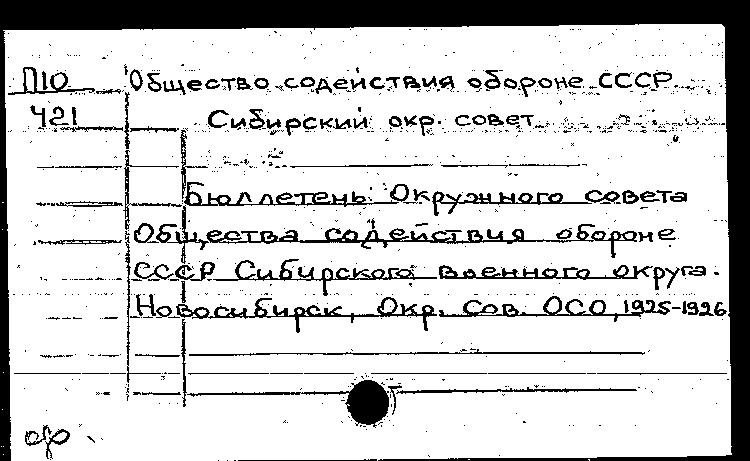 П10 Общество содействия обороне СССР
421 Сибирский окр. совет
Бюллетень Окружного совета
Общества содействия обороне
СССР Сибирского военного округа.
Новосибирск, Окр. Сов. ОСО, 1925-1926